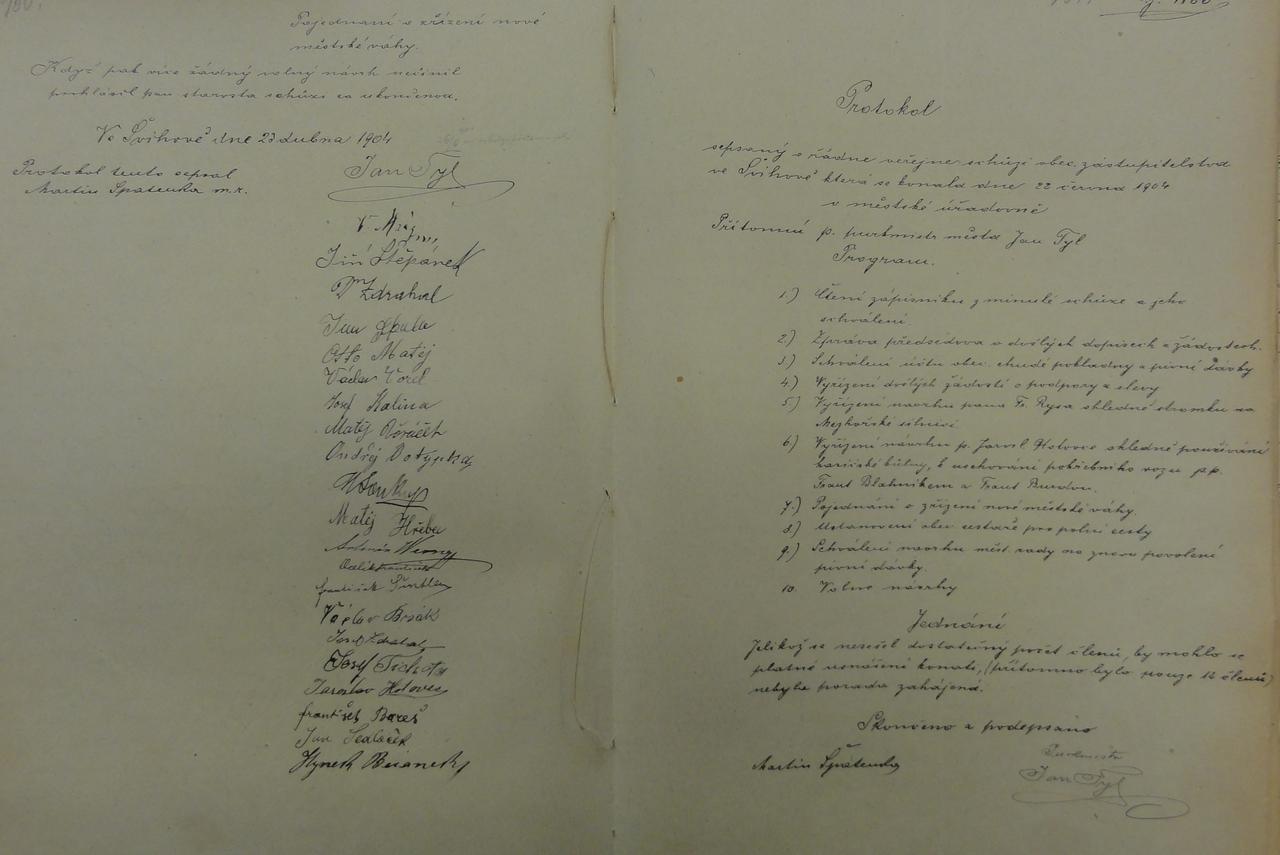 Pojednaní o zřízení nové
městské váhy.
Když pak více žádný volný návrh neučinil
prohlásil pan starosta schůzi za ukončenou.
Ve Švihově dne 23 dubna 1904
Protokol tento sepsal
Martin Spatenka m.r.
Jan Tyl
Jiří Štěpánek
Dr Zdrahal
Jan
Otto Matěj
Václav Vorel
Josef Kalina
Matěj
Ondřej Dotypka
Matěj Hřeba
Antonín
františek
Václav Brsák
Josef Zdrahal
Josef Tichota
Jaroslav Hotovec
františ Bareš
Jan Sedláček
Hynek
Protokol
sepsaný o řádne veřejne schůzi obec. zástupitelstva
ve Švihově která se konala dne 22 června 1904
v městské úřadovně
Přítomni p. purkmistr města Jan Tyl
Program.
1.) Čtení zápisníku z minulé schůze a jeho
schválení.
2.) Zpráva předsedova o došlých dopisech a žádostech.
3.) Schválení účtu obec. chudé pokladny a pivní dávky
4.) Vyřízení došlých žádostí o podpory a slevy
5.) Vyřízení navrhu pana Fr. Rysa ohledně stromku na
Mezhořské silnici
6.) Vyřízení návrhu p. Jarosl. Hotovce ohledně používání
hasičské kůlny, k uschování pohřebního vozu pp.
Frant Blahníkem a Frant Burdou.
7.) Pojednání o zřízení nové městské váhy.
8.) Ustanovení obec cestaře pro polní cesty
9.) Schválení navrhu měst. rady na znovu povolení
pivní dávky.
10. Volne návrhy
Jednání
Jelikož se nesešel dostatečný počet členů, by mohlo se
platné usnášení konati, (přítomno bylo pouze 12 členů)
nebyla porada zahájená.
Skončeno a podepsáno
Martin Špatenka
Purkmistr
Jan Tyl